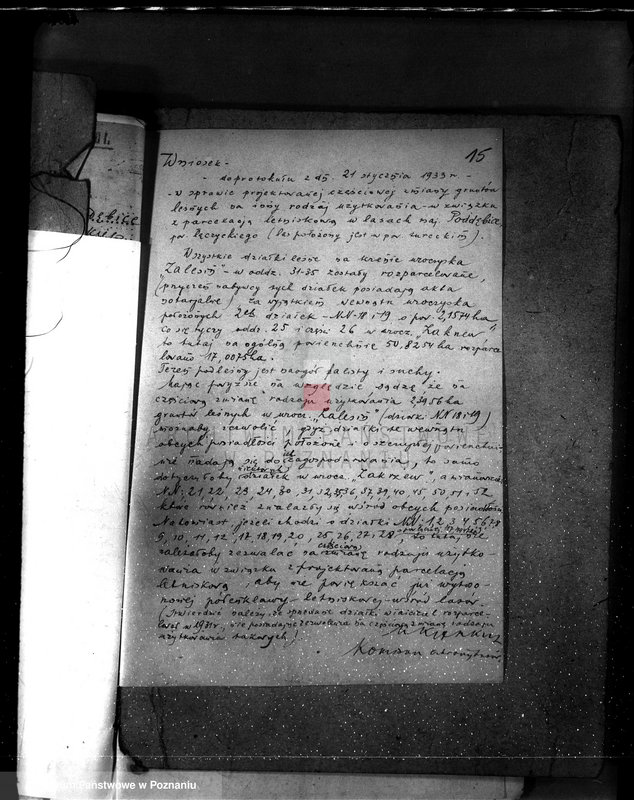 15
Wniosek -
- do protokułu z dn. 21 stycznia 1933 r. -
- w sprawie projektowanej częściowej zmiany gruntów
leśnych na inny rodzaj użytkowania - w związku
z parcelacją letniskową w lasach maj. Poddębice
pow. Łęczyckiego (las położony jest w pow. tureckim).
Wszystkie działki leśne na terenie uroczyska
"Zalesie" - w oddz. 31-35 zostały rozparcelowane,
(przyczem nabywcy tych działek posiadają akta
notarjalne), za wyjątkiem wewnątrz uroczyska
położonych 2ch działek - NN 18 i 19 o pow. 2,1574 ha
Co się tyczy oddz. 25 i części 26 w urocz. "Zakrzew"
to tutaj na ogólną powierzchnię 50,8254 ha rozparce-
lowano 17,0075 ha.
Teren podleśny jest naogół falisty i suchy.
Mając powyższe na względzie sądzę że na
częściową zmianę rodzaju użytkowania
gruntów leśnych w urocz. "Zalesie" (działk. NN 18 i 19)
możnaby zezwolić gdyż działki te wewnątrz
obcych posiadłości położone i o szczupłej powierzchni -
nie nadają się do zagospodarowania, to samo
dotyczyłoby niektórych działek w urocz. "Zakrzew", a mianowicie
NN: 21, 22, 23, 24, 30, 31, 32, 36, 37, 39, 40, 45, 50, 51, 52
które również znalazłyby się wśród obcych posiadłości
Natomiast jeżeli chodzi o działki NN: 1, 2, 3, 4, 5, 6, 7, 8
9, 10, 11, 12, 17, 18, 19, 20, 25, 26, 27, 28, to tutaj nie
należałoby zezwalać na częściową zmianę rodzaju użytko-
wania w związku z projektowaną parcelacją
letniskową, aby nie powiększać już wytwo-
rzonej półenklawy - letniskowej - wśród lasów
(Stwierdzić należy, że sprzedane działki, właściciel rozparce-
lował w 1931 r., nie posiadając zezwolenia na częściową zmianę rodzaju
użytkowania takowych)
Komisarz ochrony lasów
ARCHIWUM PAŃSTWOWE
W POZNANIU
Archiwum Państwowe w Poznaniu